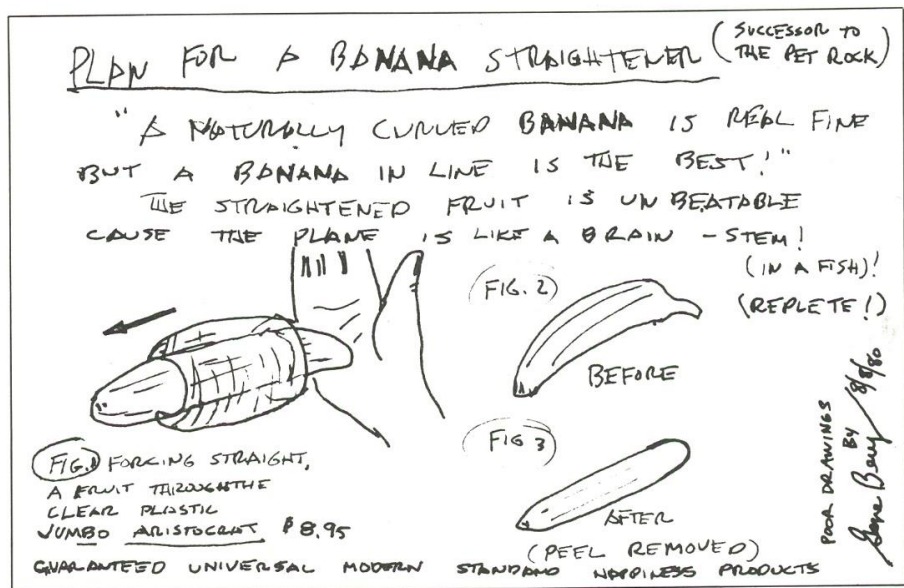 PLAN FOR A BANANA STRAIGHTENER (SUCCESSOR TO
THE PET ROCK)
"A NATURALLY CURVED BANANA IS REAL FINE
BUT A BANANA IN LINE IS THE BEST!"
THE STRAIGHTENED FRUIT IS UNBEATABLE
CAUSE THE PLANE IS LIKE A BRAIN-STEM!
(IN A FISH)!
(REPLETE!)
FIG. 2
BEFORE
FIG 3
AFTER
(PEEL REMOVED)
FIG.1 FORCING STRAIGHT,
A FRUIT THROUGH THE
CLEAR PLASTIC
JUMBO ARISTOCRAT $8.95
GUARANTEED UNIVERSAL MODERN STANDARD HAPPINESS PRODUCTS
POOR DRAWINGS
BY
Gene 8/8/80